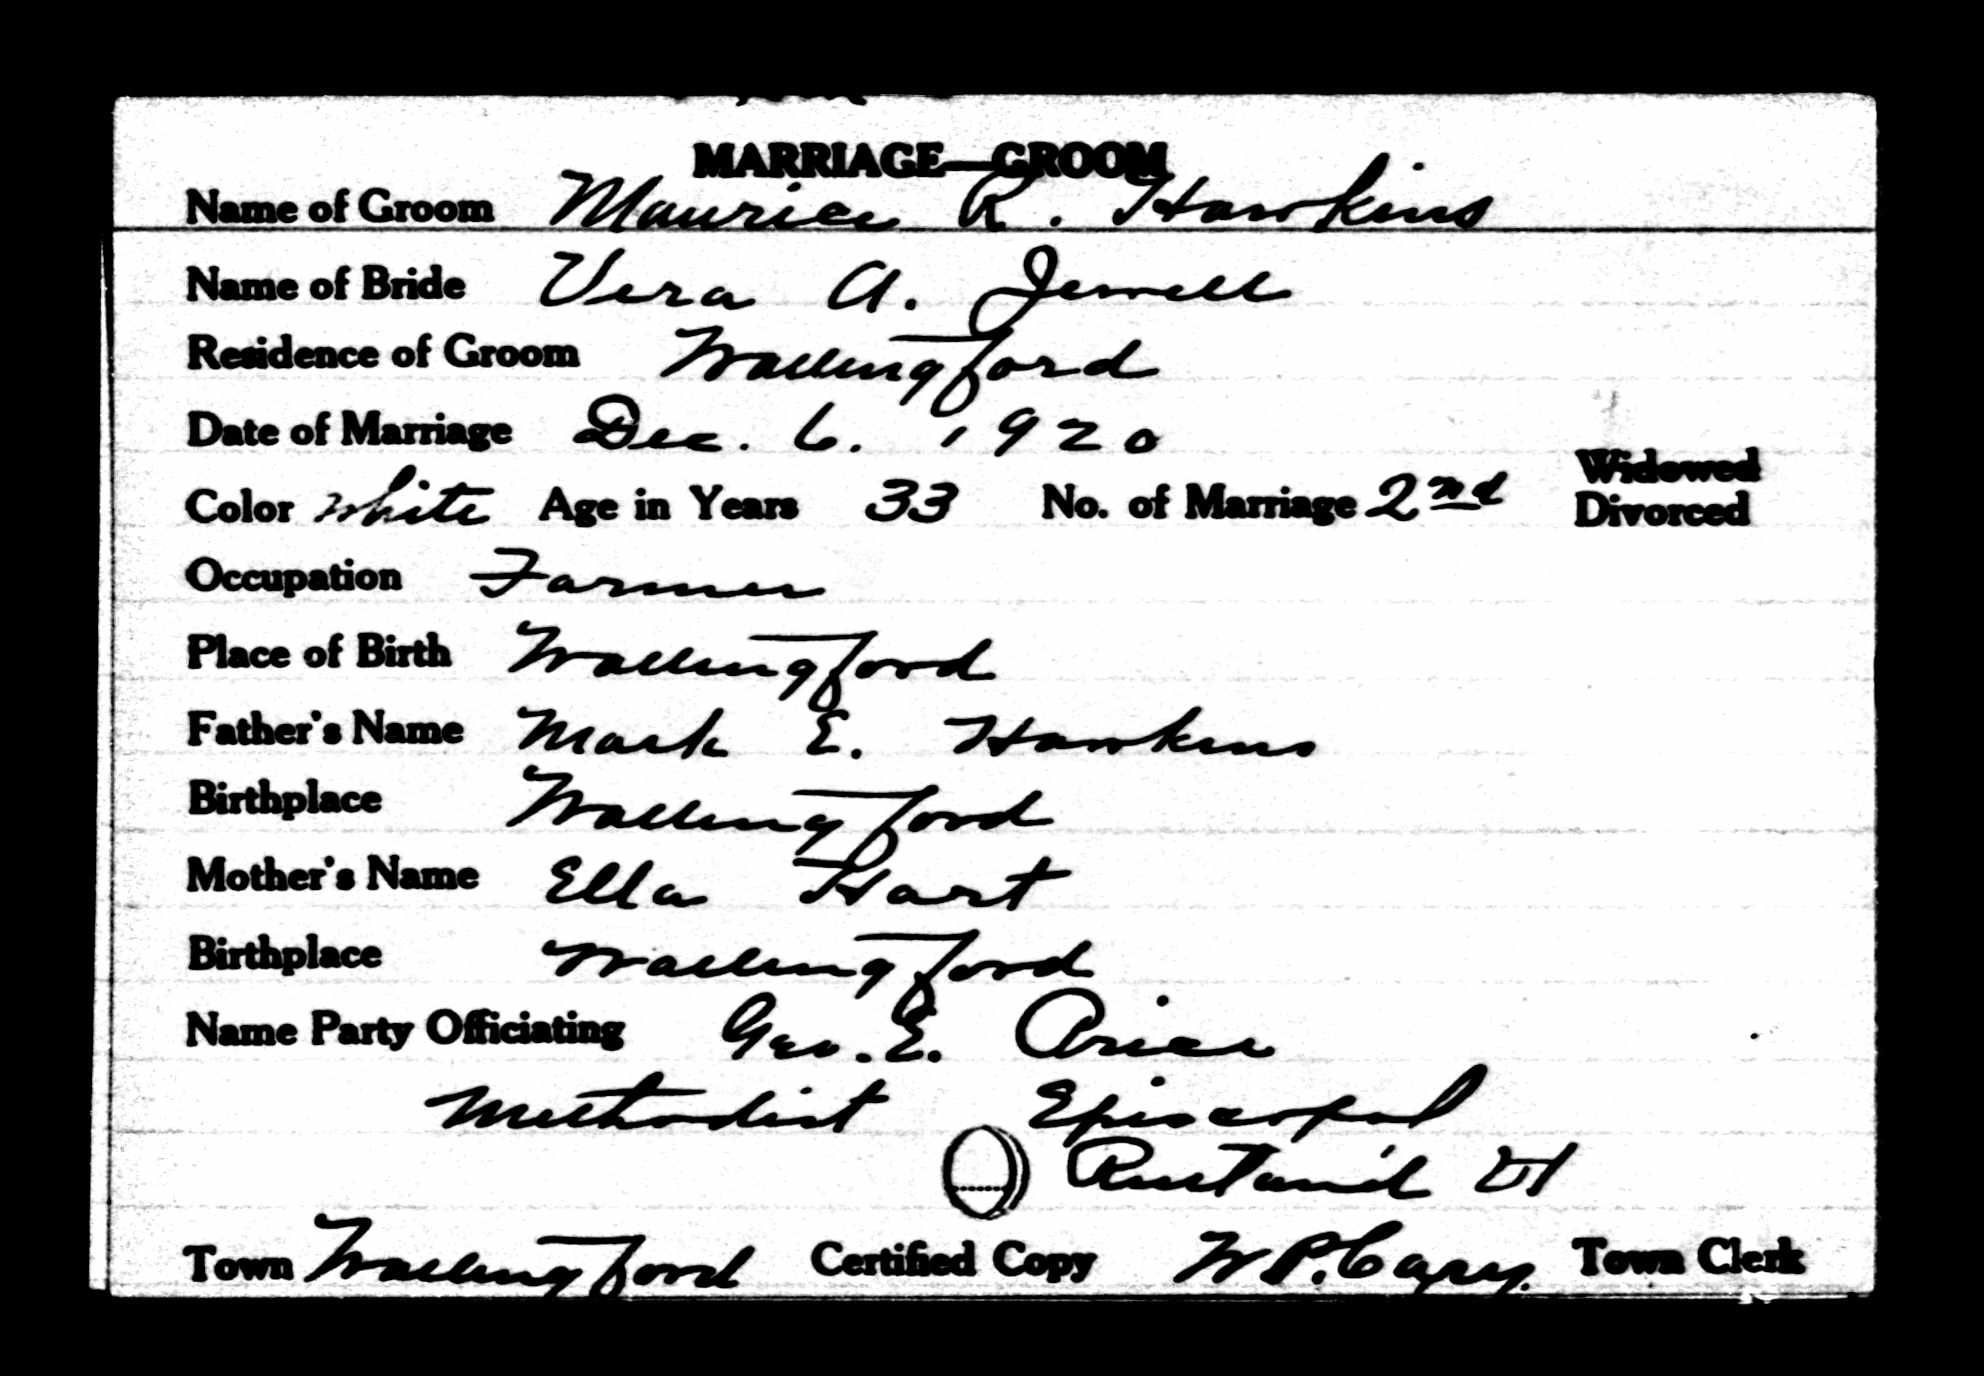 MARRIAGE—GROOM
Name of Groom Maurice R. Hawkins
Name of Bride Vera A. Jewell
Residence of Groom Wallingford
Date of Marriage Dec. 6. 1920
Widowed
Color White Age in Years 33 No. of Marriage 2nd Divorced
Occupation Farmer
Place of Birth Wallingford
Father's Name Mark E. Hawkins
Birthplace Wallingford
Mother's Name Ella Hart
Birthplace Wallingford
Name Party Officiating Geo. E. Price
Methodist Episcopal
Rutland Vt
Town Wallingford Certified Copy W P. Cary. Town Clerk